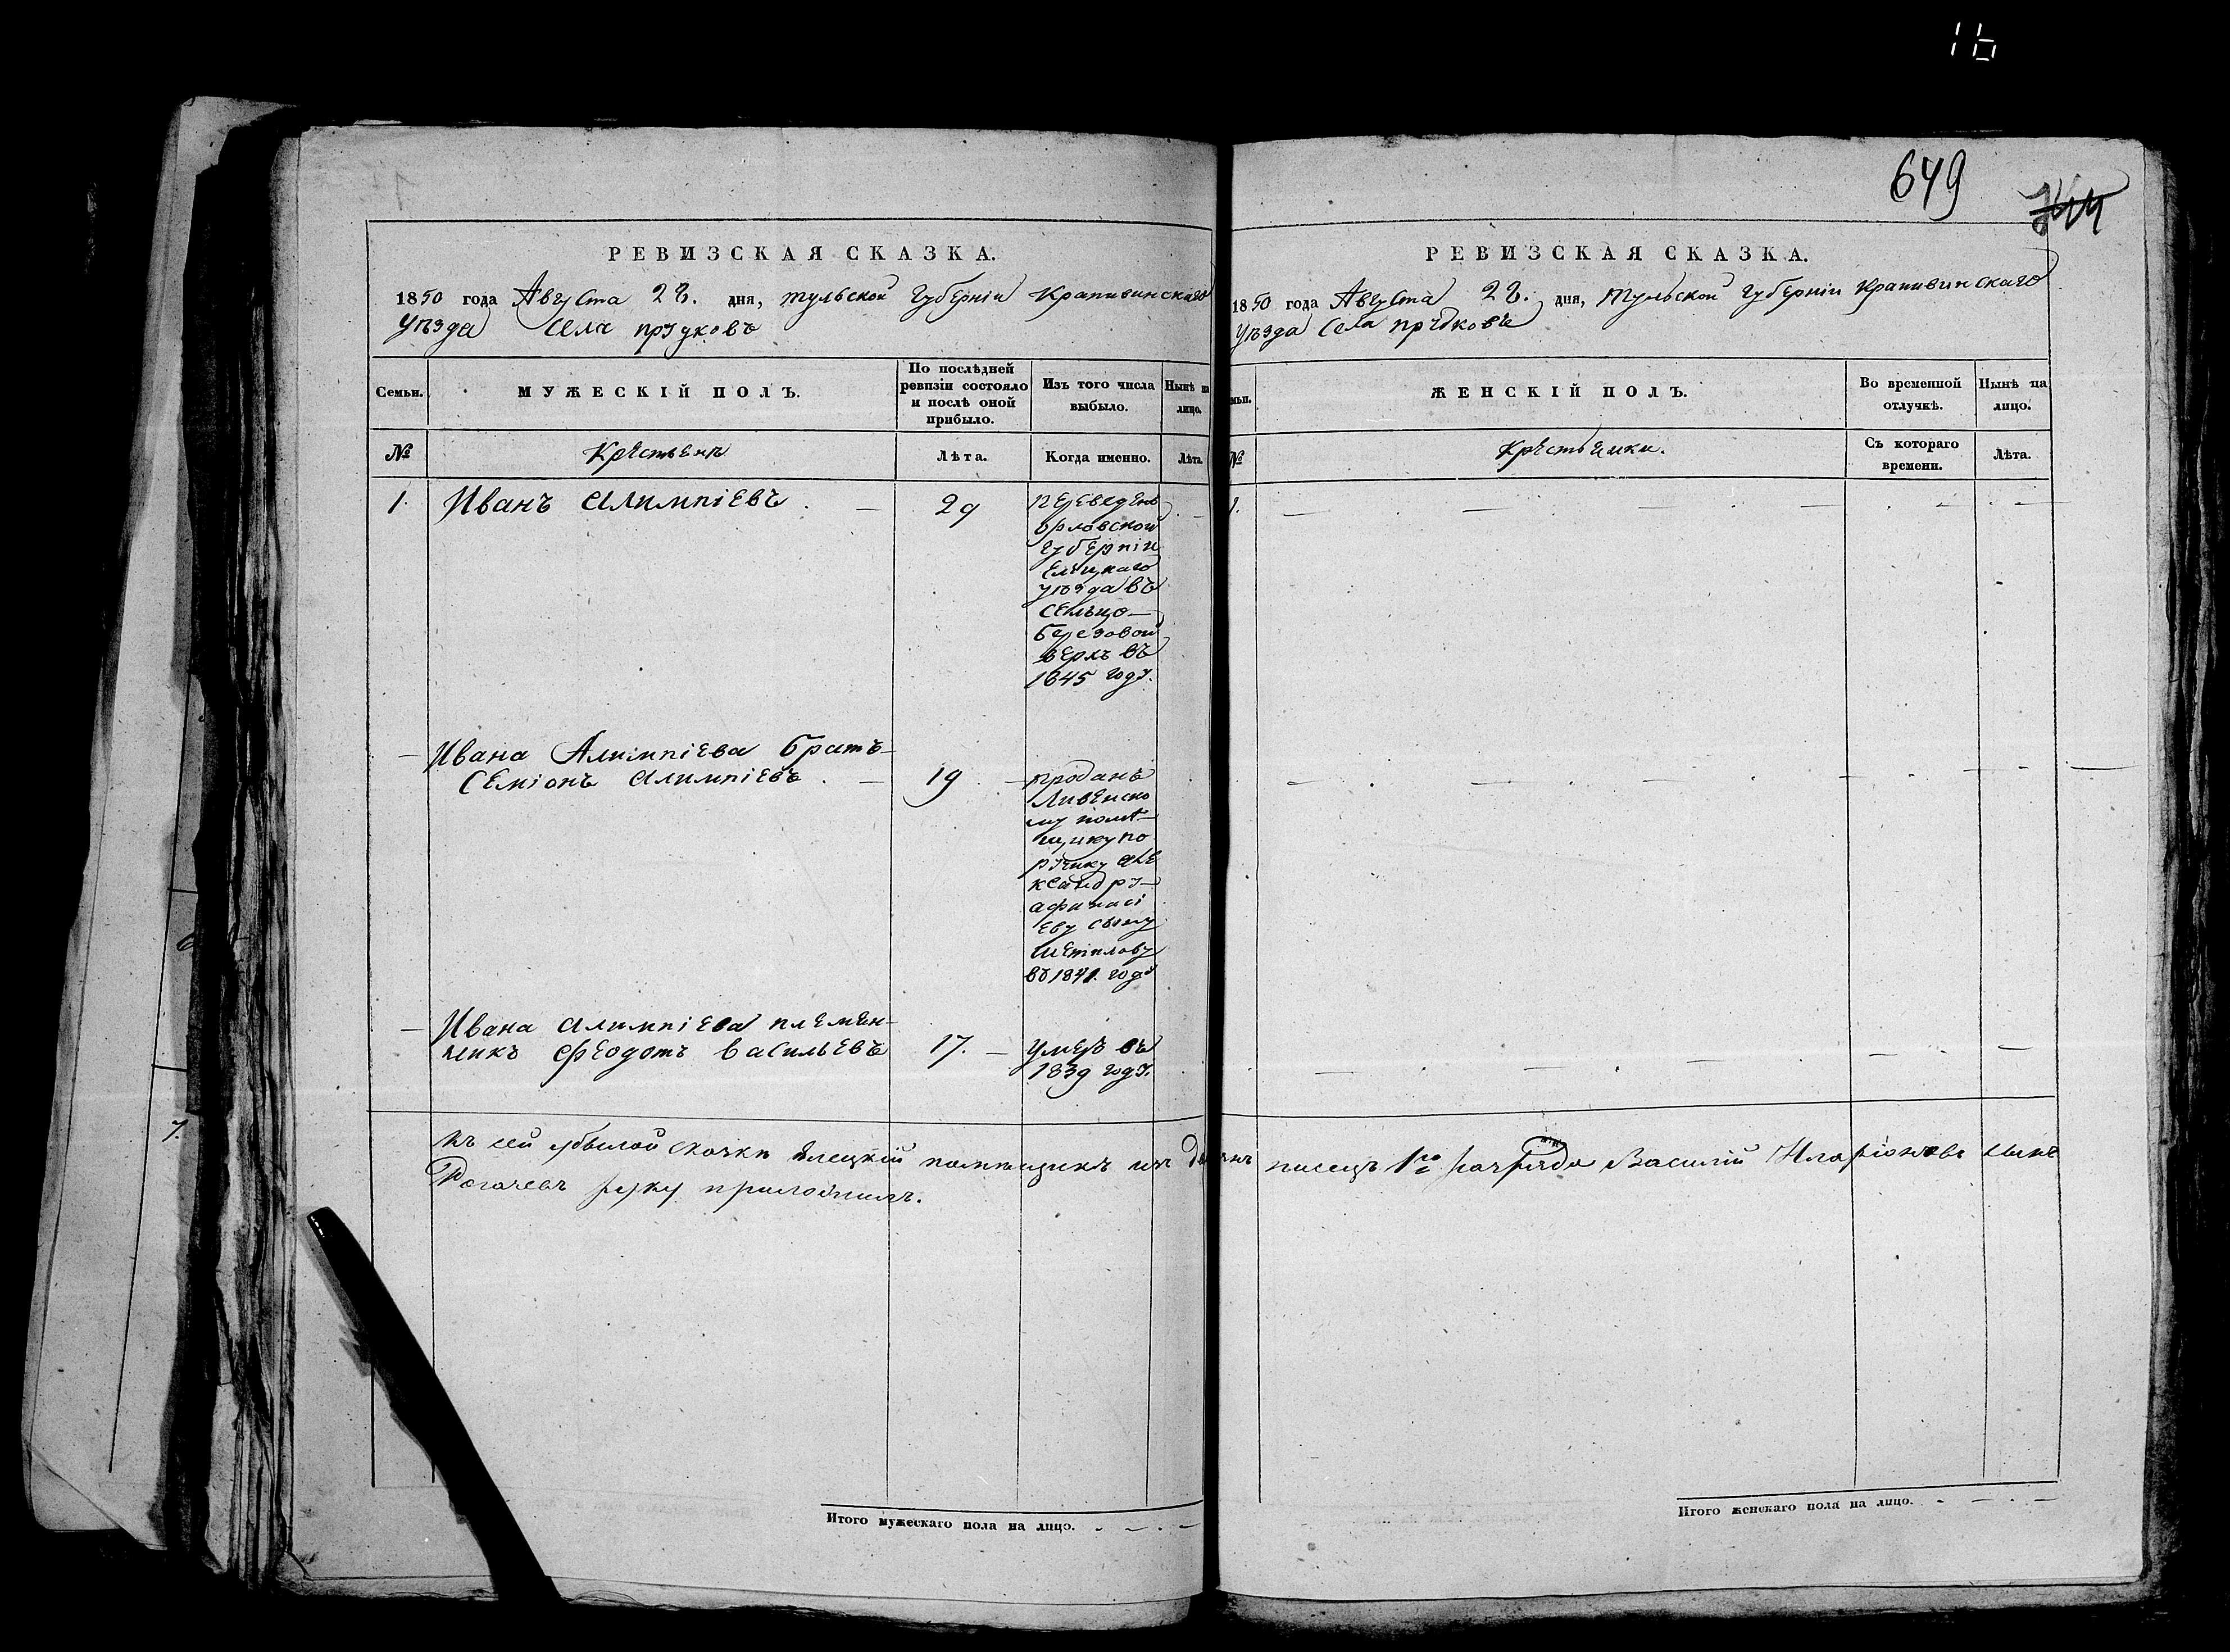 16
649
РЕВИЗСКАЯ СКАЗКА.
1850 года Августа 22. дня, тульской губерніи Крапивинскаго
уѣзда села прудковъ
Семьи.
МУЖЕСКІЙ ПОЛЪ.
По послѣдней
ревизіи состояло
и послѣ оной
прибыло.
Изъ того числа
выбыло.
Нынѣ на
лицо.
№
Крестьенъ
Лѣта.
Когда именно.
Лѣта.
1. Иванъ алимпіевъ. — 29
переведенъ
орловской
губерніи
Елецкаго
уѣзда въ
сельцо —
березовой
верхъ въ
1845 году.
— Ивана Алимпіева братъ —
Семіонъ алимпіевъ. — 19 —
проданъ
Ливенско
му помѣ-
щику по
ручику але
ксандру —
афанасі
еву сыну
въ 1841. году
— Ивана алимпіева племен-
никъ феодотъ васильевъ 17. —
умеръ въ
1839 году.
къ сей убылой скаски Елецкій помѣщикъ изъ дворянъ писецъ 1го разряда Василій Иларіоновъ сынъ
Рогачевъ руку приложилъ.
Итого мужескаго пола на лицо. - - . -
РЕВИЗСКАЯ СКАЗКА.
1850 года Августа 22. дня, тульской губерніи крапивинскаго
уѣзда села прудковъ
мьи.
ЖЕНСКІЙ ПОЛЪ.
Во временной
отлучкѣ.
Нынѣ на
лицо.
№
крестьенки.
Съ котораго
времени.
Лѣта.
1.
Итого женскаго пола на лицо. - — . —
7.